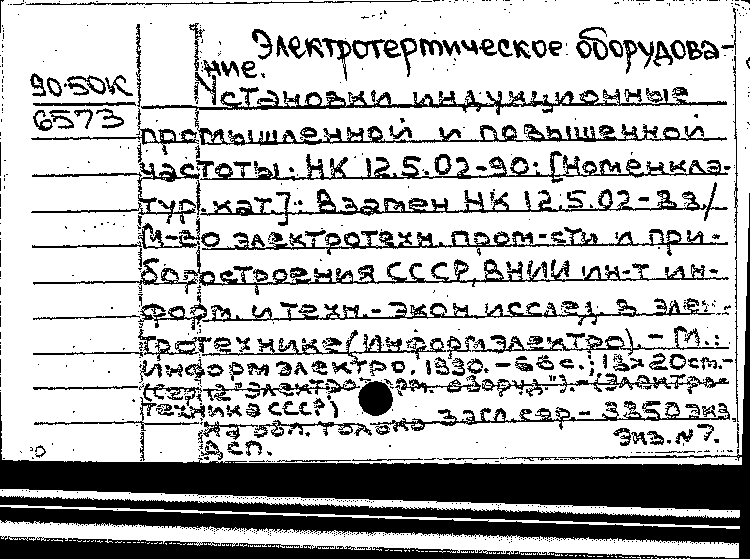 Электротермическое оборудова-
ние.
90-50К
Установки индукционные
6573
промышленной и повышенной
частоты: НК 12.5.02-90: [Номенкла-
тур. кат.]: Взамен НК 12.5.02-83/
М-во электротехн. пром-сти и при-
боростроения СССР, ВНИИ ин-т ин-
форм. и техн.-экон. исслед. в элек-
тротехнике (Информэлектро). - М.:
Информэлектро, 1990. - 66 с.; 13×20 см. -
(Серия "Электротерм. оборуд."). - (Электро-
техника СССР)
На обл. только загл. сер. - 3350 экз.
ДСП.
Экз. №7.